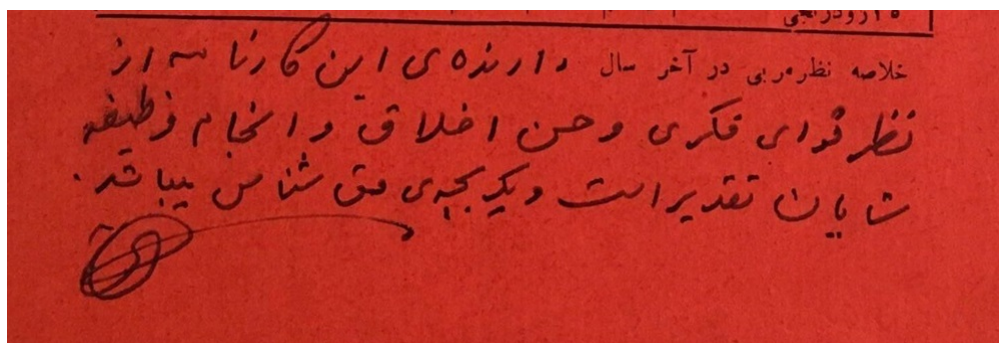 خلاصه نظر مربی در آخر سال دارنده‌ی این کارنامه از
نظر قوای فکری و حسن اخلاق و انجام وظیفه
شایان تقدیر است و یک بچه‌ی حق شناس میباشد.